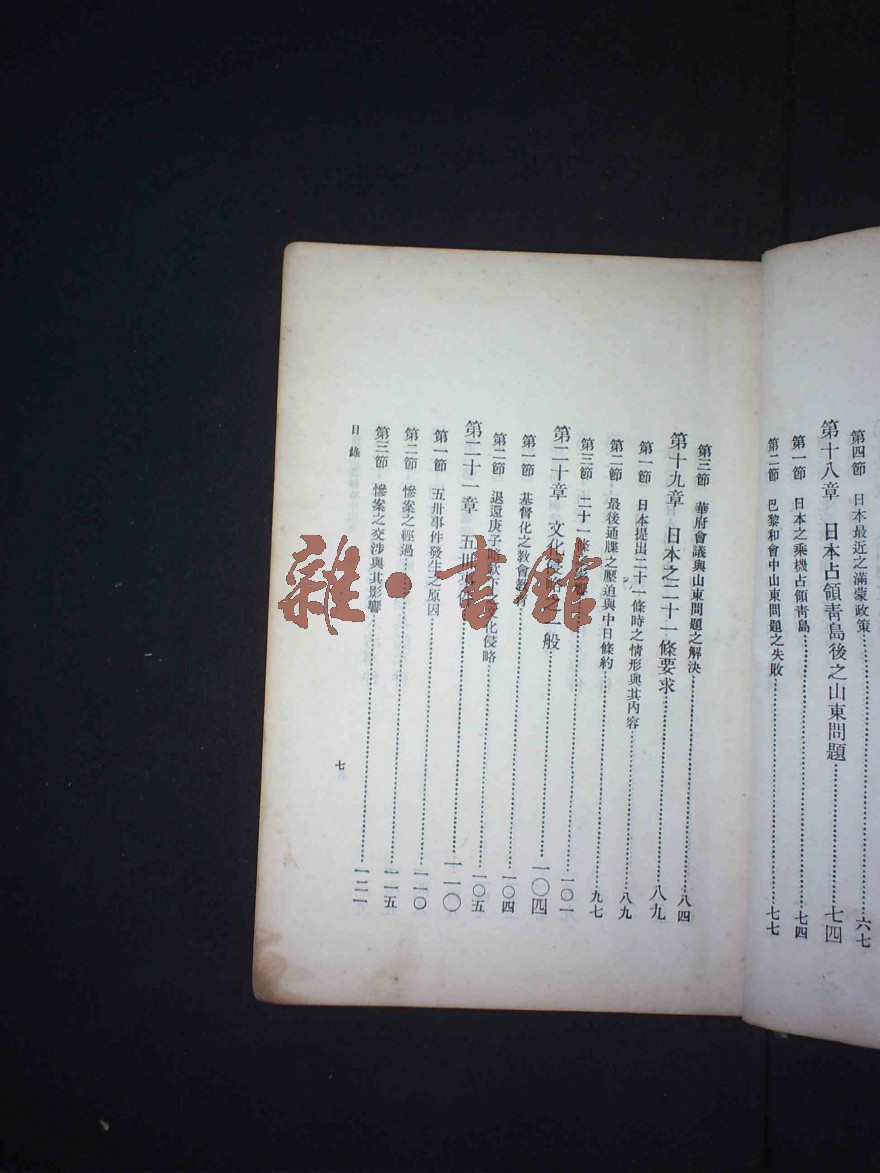 第四節　日本最近之滿蒙政策……六七
第十八章　日本占領靑島後之山東問題……七四
第一節　日本之乘機占領靑島……七四
第二節　巴黎和會中山東問題之失敗……七七
第三節　華府會議與山東問題之解決……八四
第十九章　日本之二十一條要求……八九
第一節　日本提出二十一條時之情形與其內容……八九
第二節　最後通牒之壓迫與中日條約……九七
第三節　二十一條……一〇一
第二十章　文化侵略之一般……一〇四
第一節　基督化之敎會敎育……一〇四
第二節　退還庚子賠款下之文化侵略……一〇五
第二十一章　五卅事件……一一〇
第一節　五卅事件發生之原因……一一〇
第二節　慘案之經過……一一五
第三節　慘案之交涉與其影響……一二一
目錄
七
雜·書館